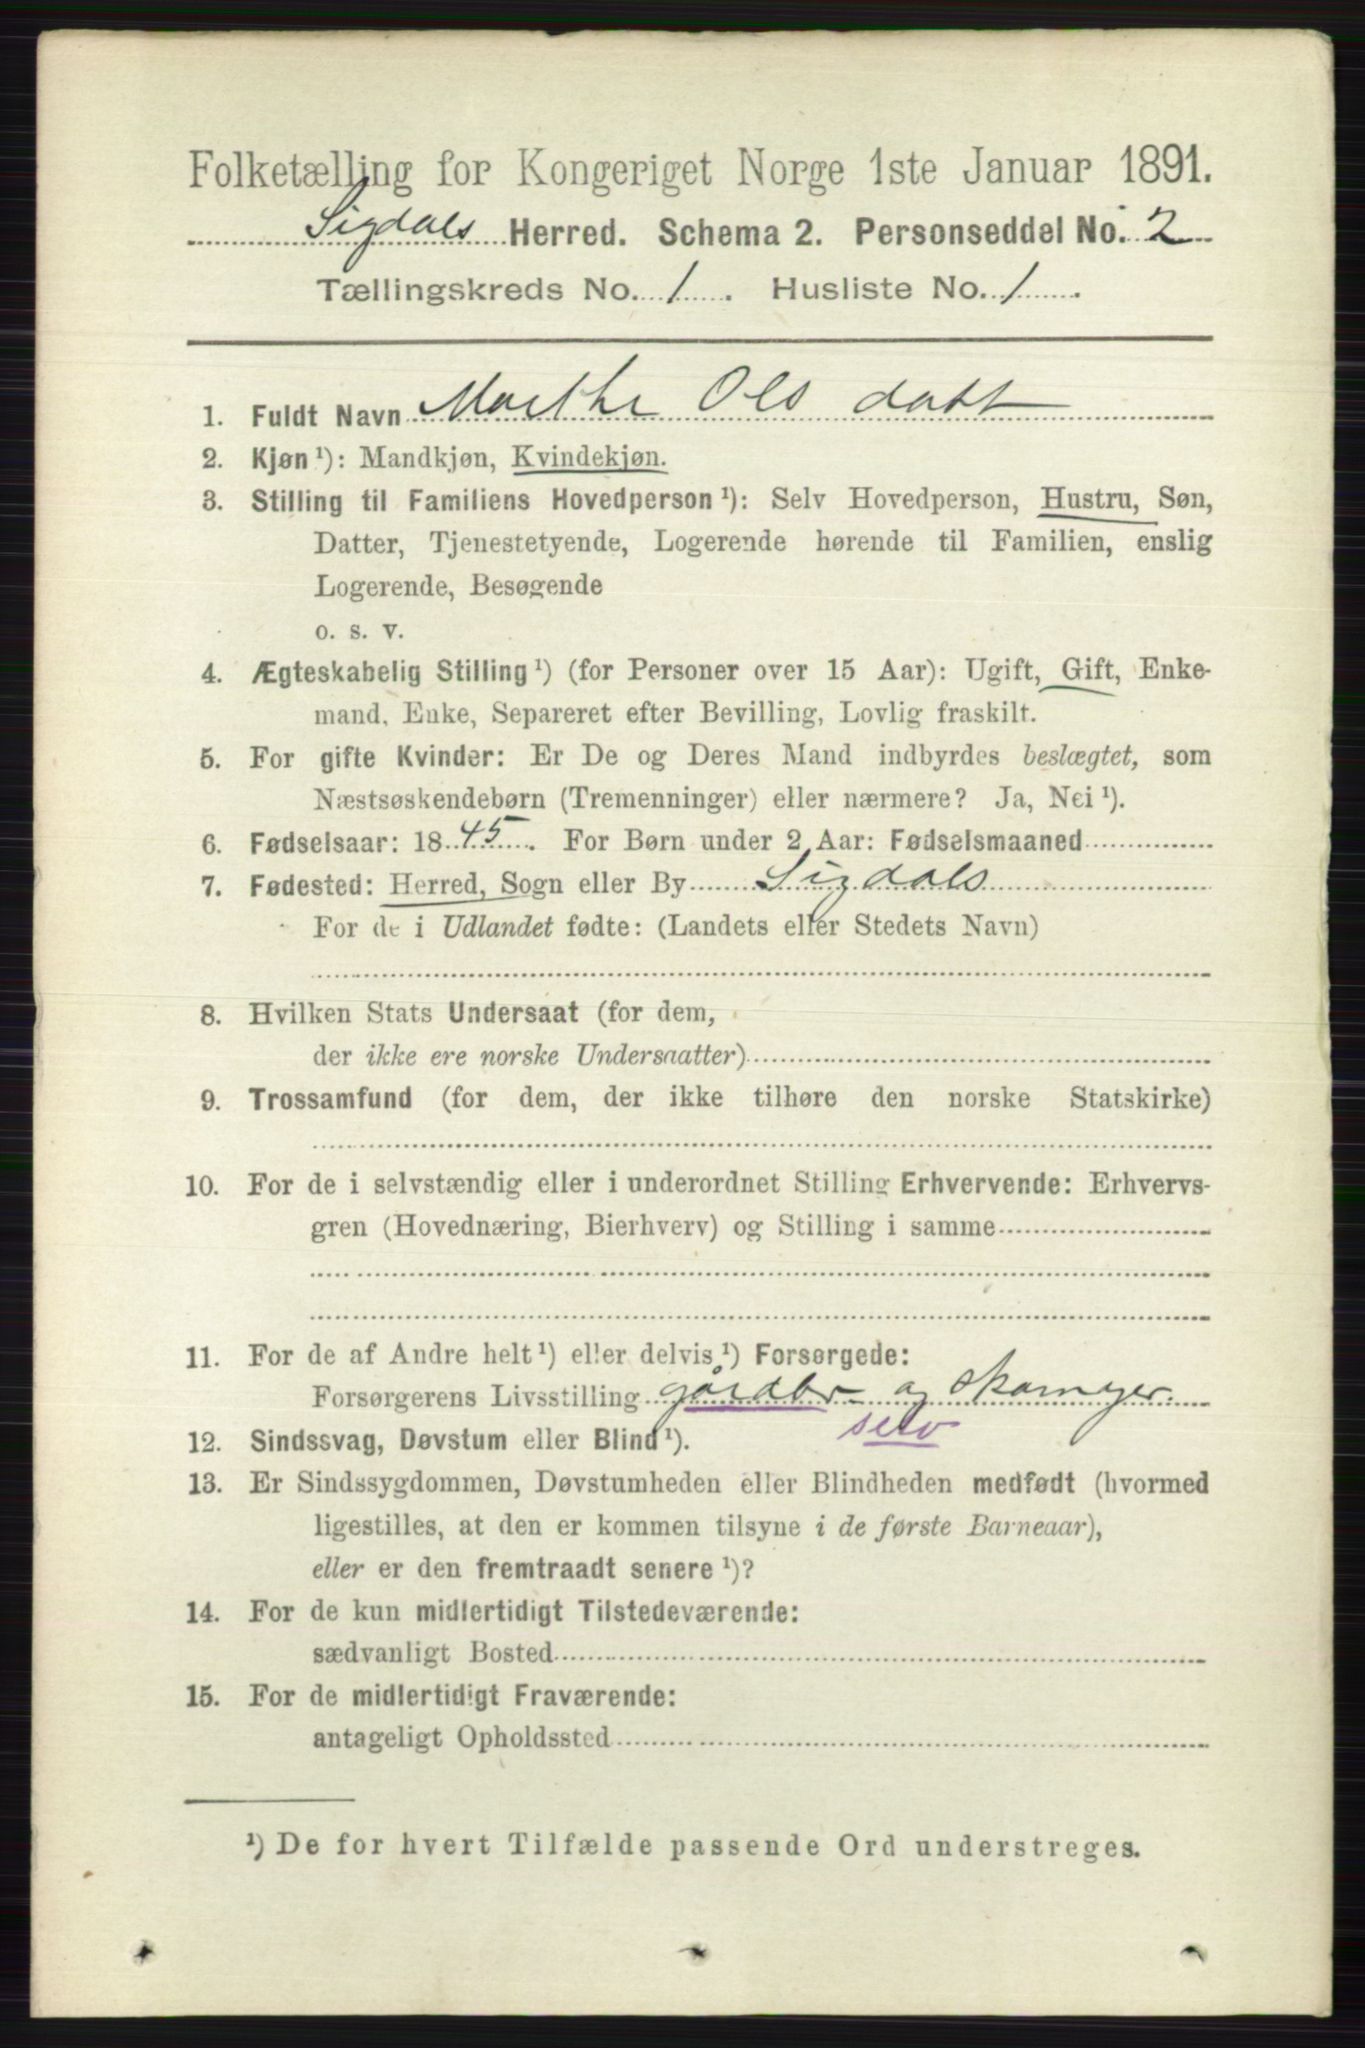 Folketælling for Kongeriget Norge 1ste Januar 1891.
Sigdals Herred. Schema 2. Personseddel No. 2
Tællingskreds No. 1. Husliste No. 1.
1. Fuldt Navn Marthe Olsdatt
2. Kjøn ¹): Mandkjøn, Kvindekjøn.
3. Stilling til Familiens Hovedperson ¹): Selv Hovedperson, Hustru, Søn,
Datter, Tjenestetyende, Logerende hørende til Familien, enslig
Logerende, Besøgende
o. s. v.
4. Ægteskabelig Stilling ¹) (for Personer over 15 Aar): Ugift, Gift, Enke-
mand, Enke, Separeret efter Bevilling, Lovlig fraskilt.
5. For gifte Kvinder: Er De og Deres Mand indbyrdes beslægtet, som
Næstsøskendebørn (Tremenninger) eller nærmere? Ja, Nei ¹).
6. Fødselsaar: 1845. For Børn under 2 Aar: Fødselsmaaned
7. Fødested: Herred, Sogn eller By Sigdals
For de i Udlandet fødte: (Landets eller Stedets Navn)
8. Hvilken Stats Undersaat (for dem,
der ikke ere norske Undersaatter)
9. Trossamfund (for dem, der ikke tilhøre den norske Statskirke)
10. For de i selvstændig eller i underordnet Stilling Erhvervende: Erhvervs-
gren (Hovednæring, Bierhverv) og Stilling i samme
11. For de af Andre helt ¹) eller delvis ¹) Forsørgede:
Forsørgerens Livsstilling gårdbr og skomger.
selv
12. Sindssvag, Døvstum eller Blind ¹).
13. Er Sindssygdommen, Døvstumheden eller Blindheden medfødt (hvormed
ligestilles, at den er kommen tilsyne i de første Barneaar),
eller er den fremtraadt senere ¹)?
14. For de kun midlertidigt Tilstedeværende:
sædvanligt Bosted
15. For de midlertidigt Fraværende:
antageligt Opholdssted
¹) De for hvert Tilfælde passende Ord understreges.